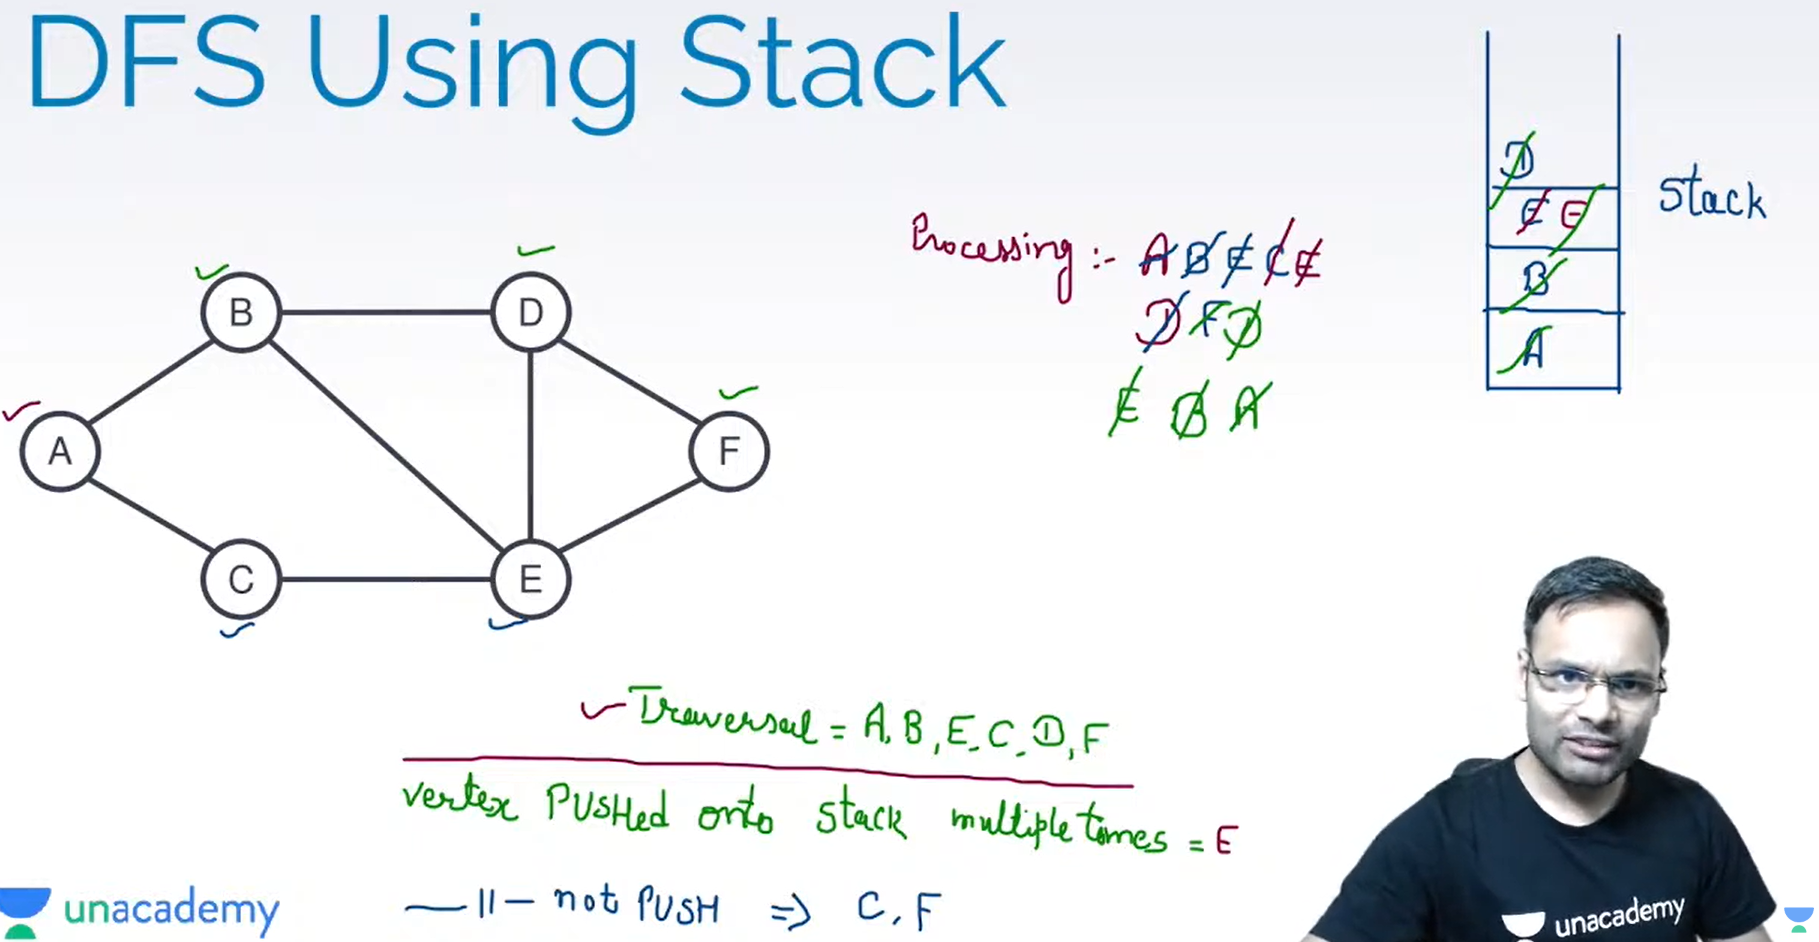 DFS Using Stack
Processing :- A B E C E
D F D
E B A
D
E E
B
A
Stack
B
D
A
F
C
E
Traversal = A, B, E, C, D, F
vertex PUSHed onto stack multiple times = E
— 11 — not PUSH ⇒ C, F
unacademy
unacademy